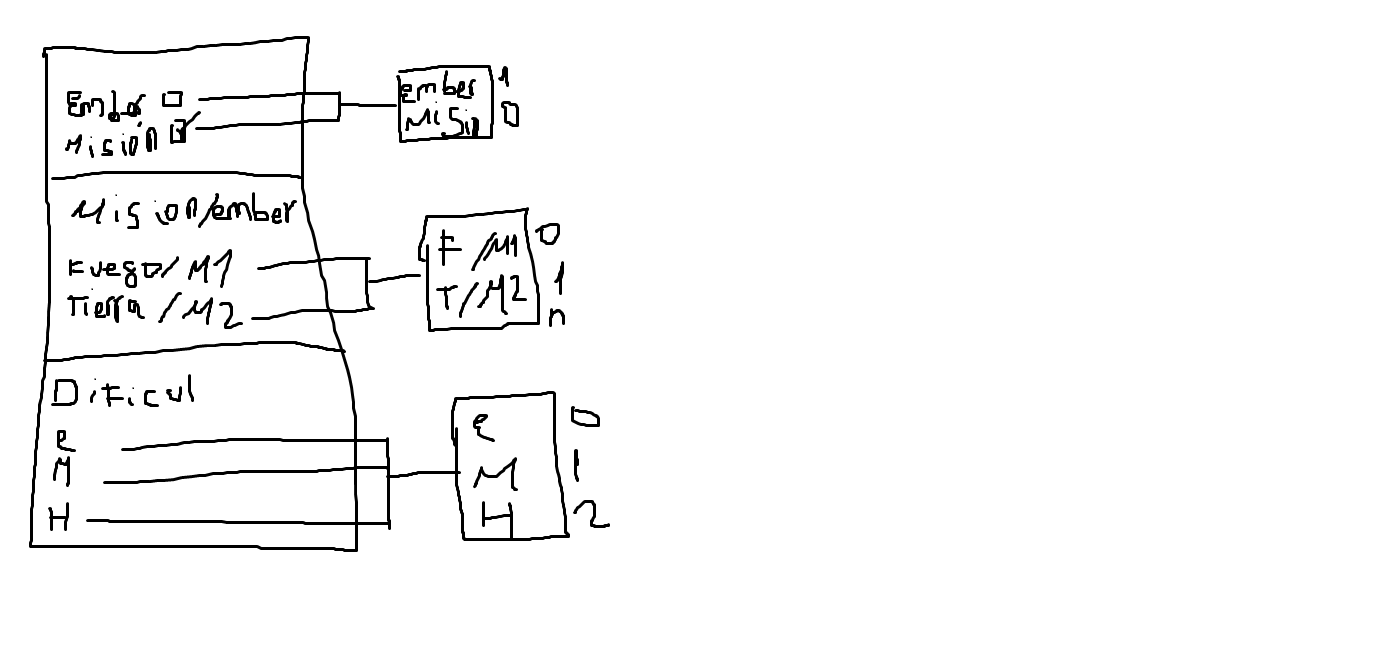 Ember
Misión
ember 1
Misin 0
Mision/ember
Fuego/M1
Tierra/M2
F/M1 0
T/M2 1
n
Dificul
e
M
H
e 0
M 1
H 2